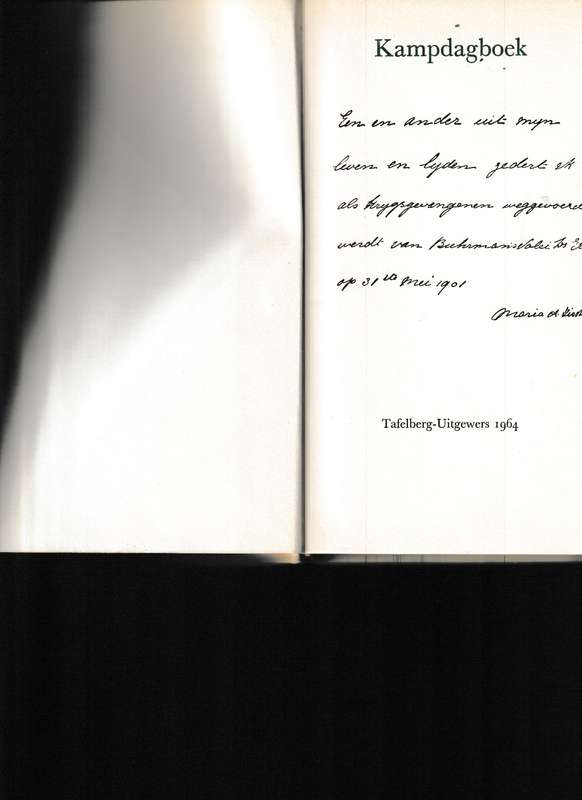 Kampdagboek
Een en ander uit myn
leven en lyden zedert ik
als krygsgevangenen weggevoerd
werdt van Buhrmansvalei
op 31sten Mei 1901
Maria
Tafelberg-Uitgewers 1964